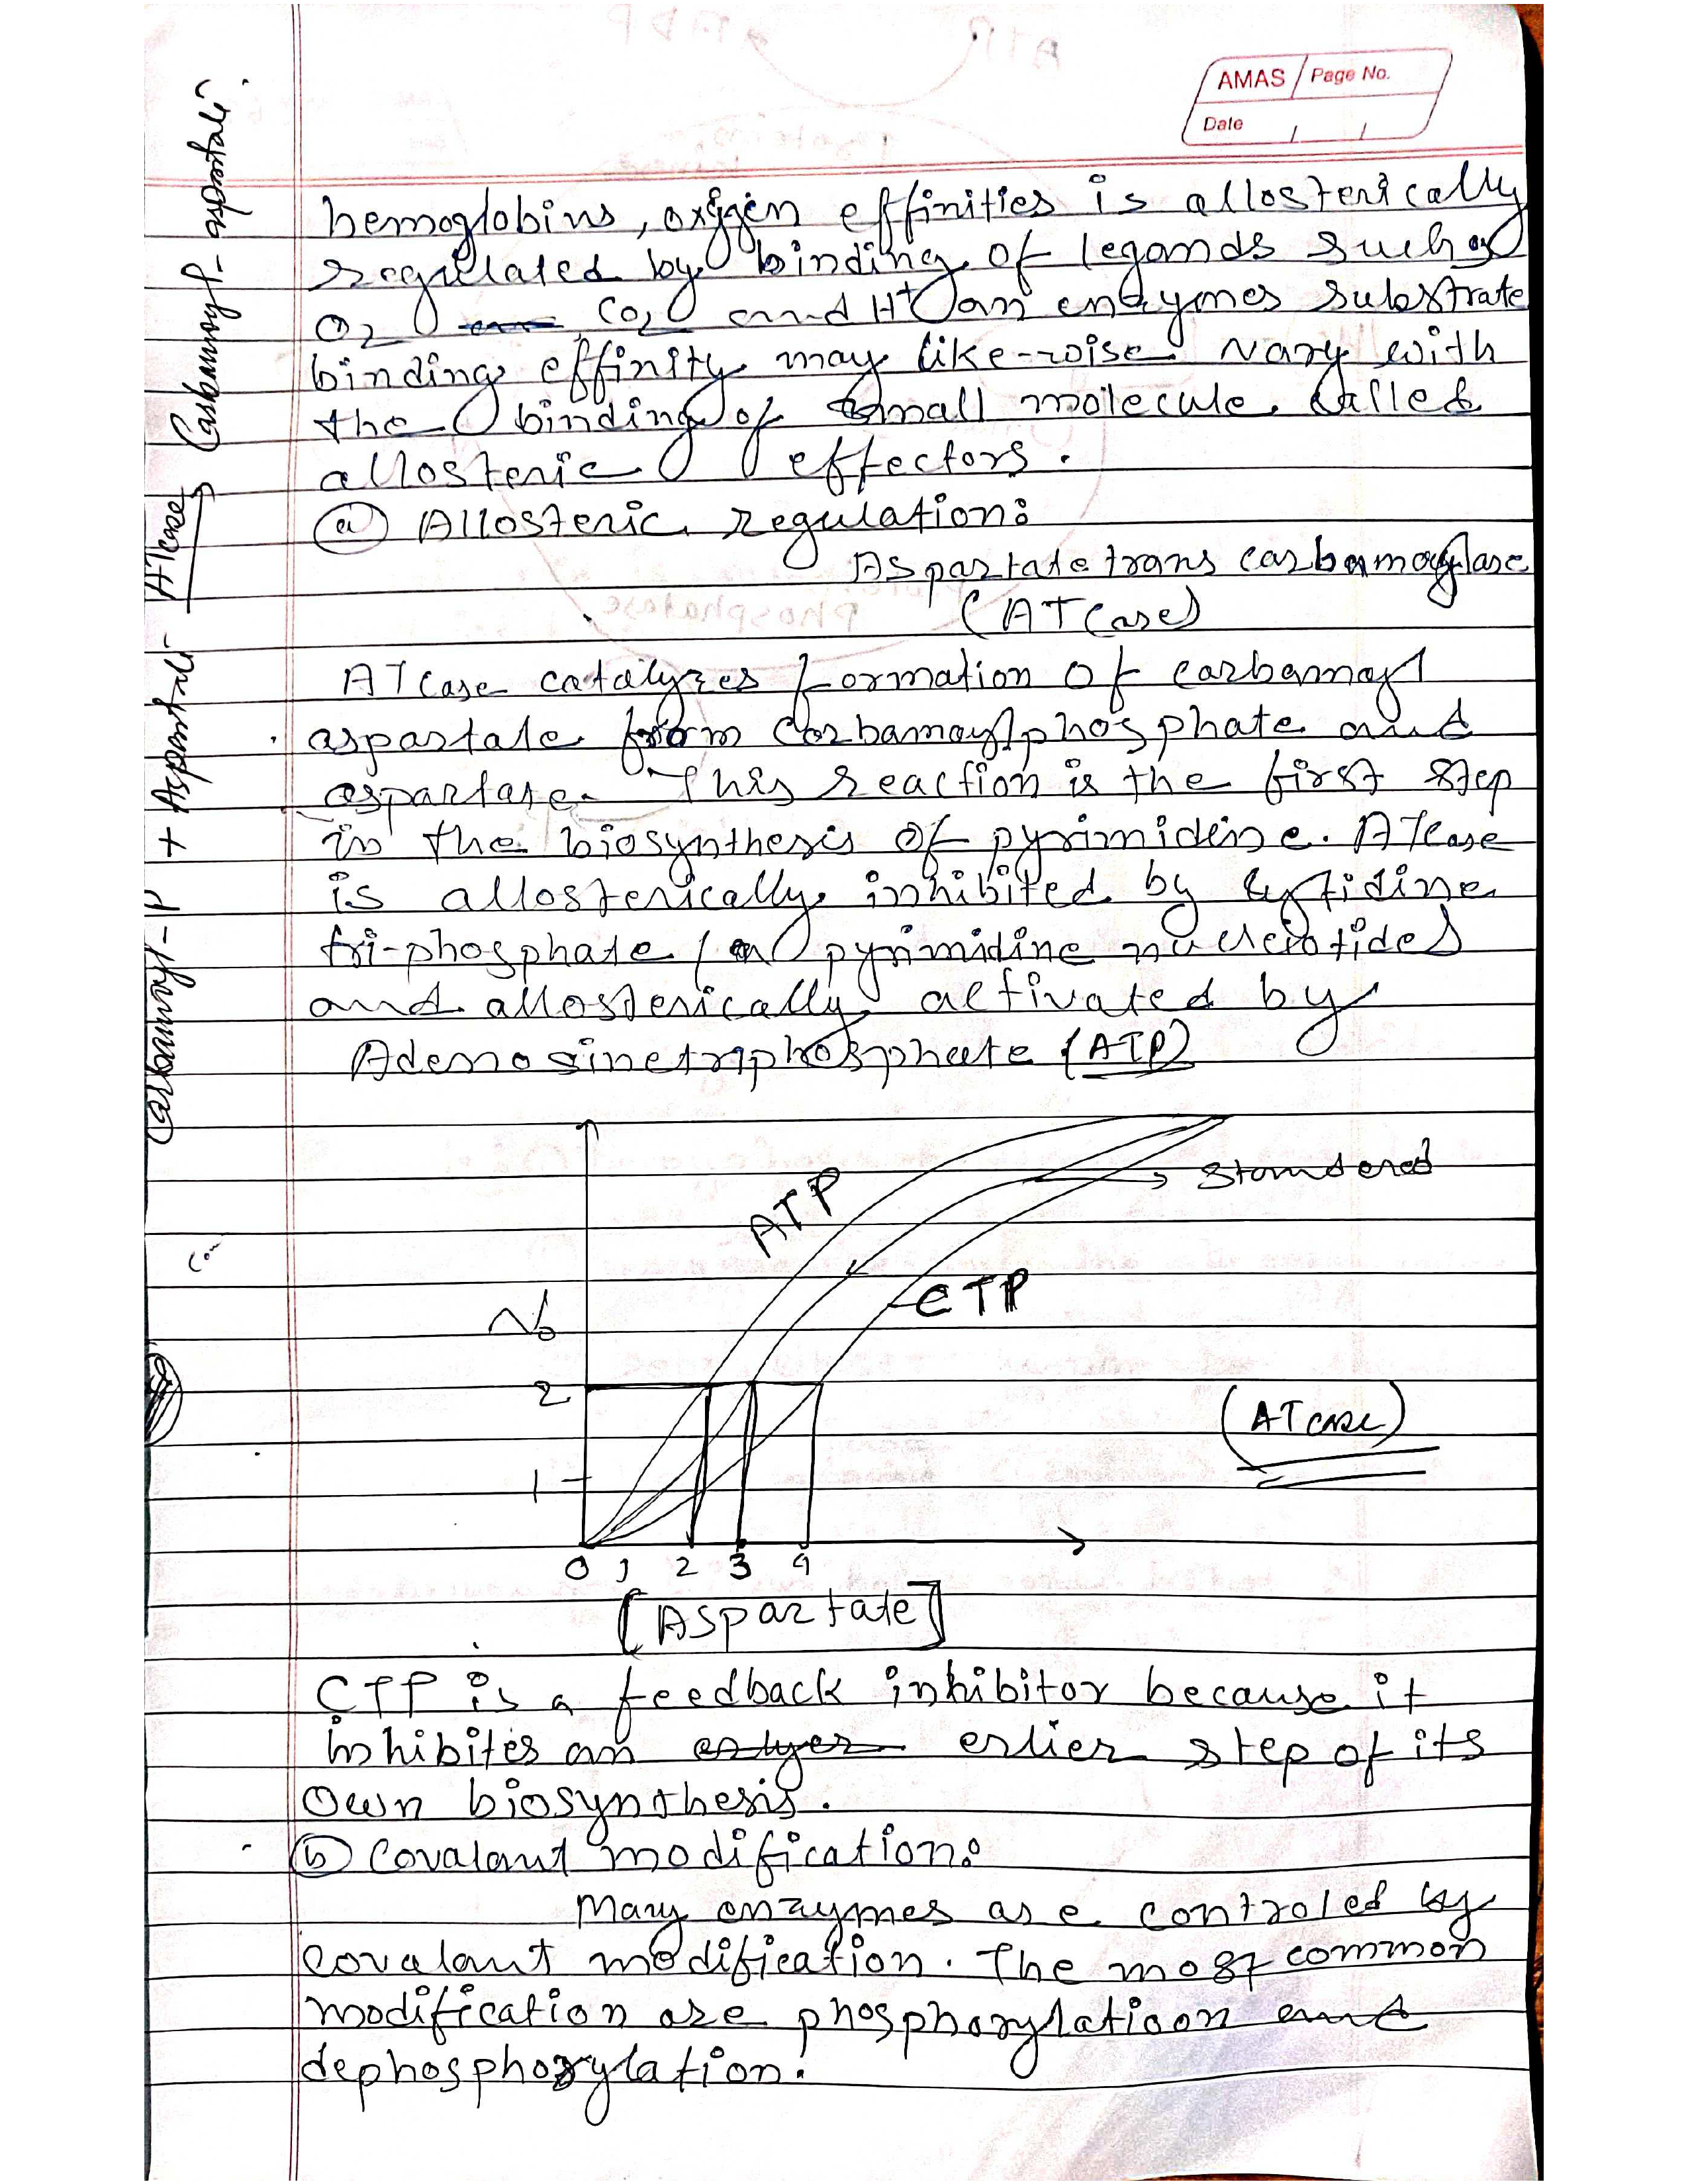 AMAS Page No.
Date / /
hemoglobins, oxygen effinities is allosterically
regulated by binding of legands such as
O2 CO2 and H+ an enzymes substrate
binding effinity may like-wise vary with
the binding of small molecule called
allosteric effectors.
(a) Allosteric regulation:
Aspartate trans carbamoylase
(ATCase)
ATCase catalyzes formation of carbamoyl
aspartate from carbamoylphosphate and
aspartate. This reaction is the first step
in the biosynthesis of pyrimidine. ATCase
is allosterically inhibited by cytidine
tri-phosphate / a pyrimidine nucleotides
and allosterically activated by
Adenosinetriphosphate (ATP)
Carbamoyl-P + Aspartate ATCase Carbamoyl-aspartate
ATP
Standered
CTP
Vo
2
1
(ATcase)
0 1 2 3 4
[Aspartate]
CTP is a feedback inhibitor because it
inhibites an erlier step of its
own biosynthesis.
(b) Covalant modification:
Many enzymes are controled by
covalant modification. The most common
modification are phosphorylatioon and
dephosphorylation.